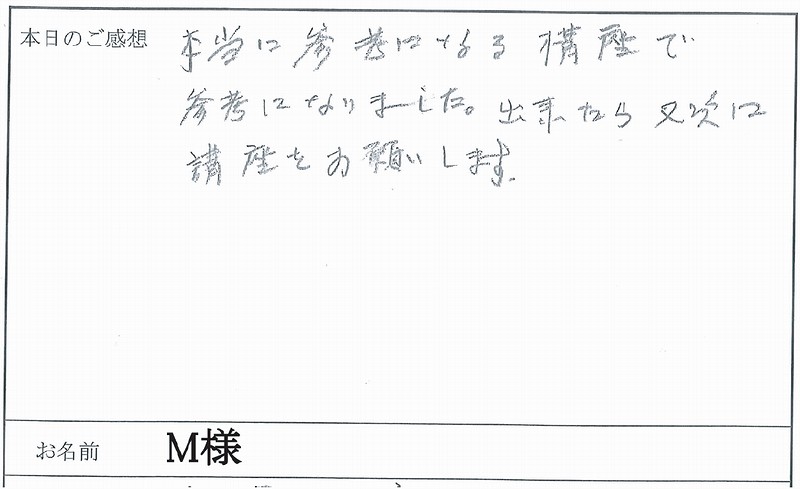 本日のご感想
本当に参考になる構座で
参考になりました。出来たら又次に
講座をお願いします.
お名前 M様